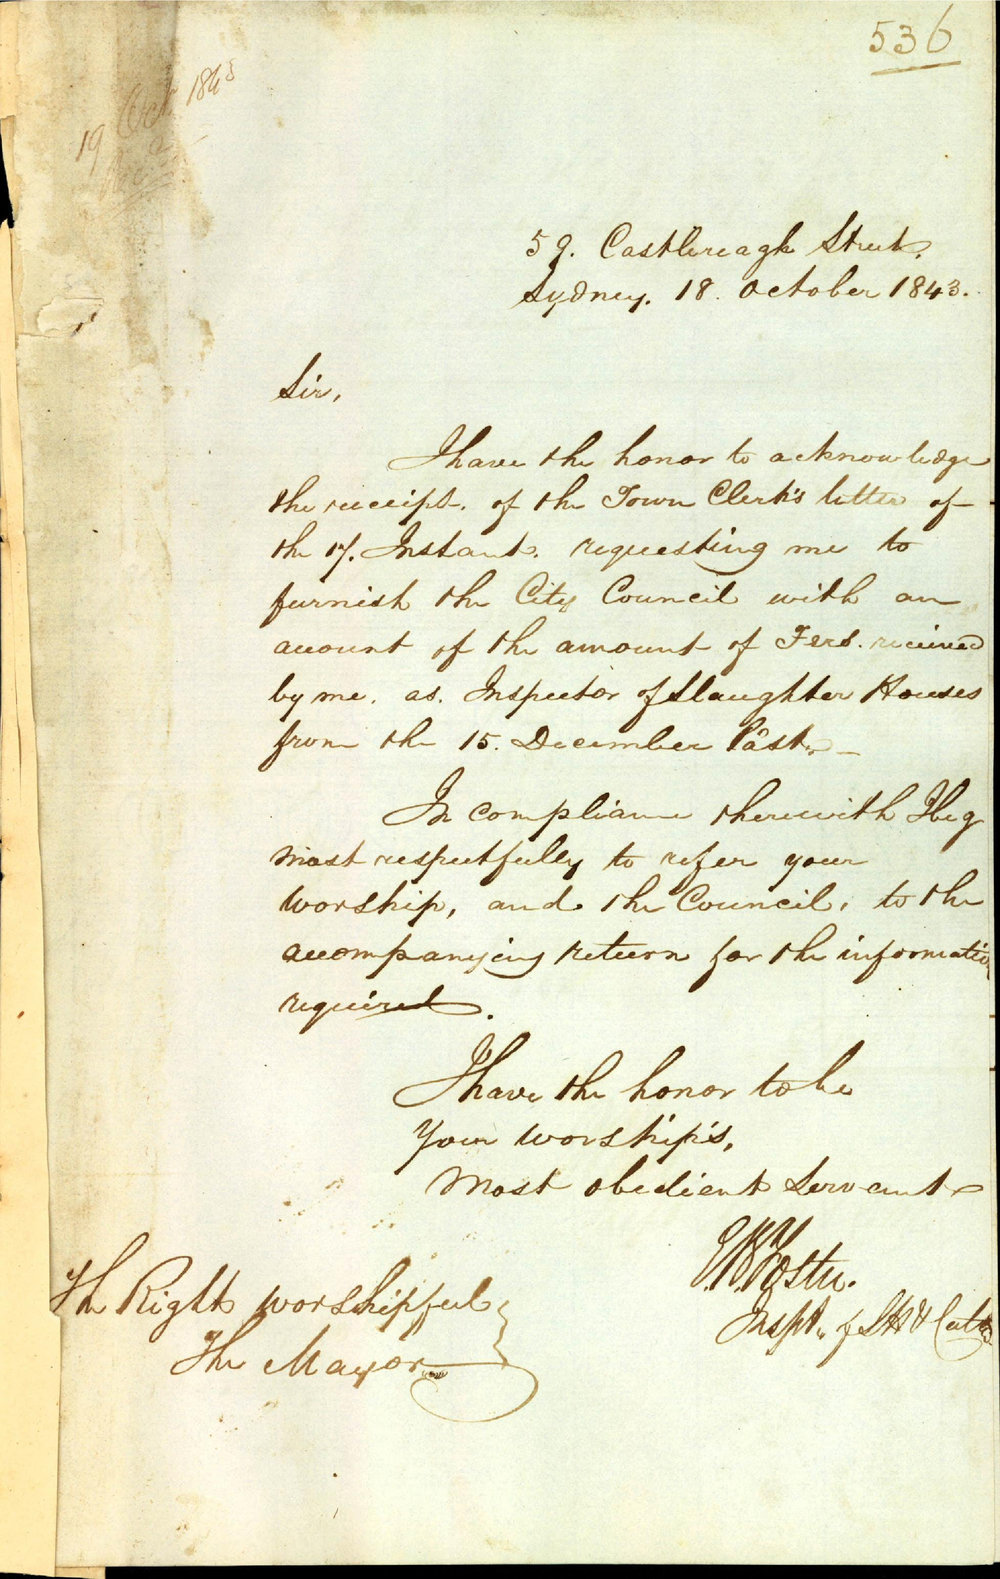 536
19 Oct. 1843
59. Castlereagh Street,
Sydney. 18. October 1843.
Sir,
I have the honor to acknowledge
the receipt. of the Town Clerk's letter of
the 17. Instant. requesting me to
furnish the City Council with an
account of the amount of Fees. received
by me. as. Inspector of Slaughter Houses
from the 15. December Past. —
In compliance therewith I beg
most respectfully to refer your
Worship, and the Council, to the
accompanying return for the information
required.
I have the honor to be
Your Worship's,
Most obedient Servant
Foster.
Inspt. of S H & Cattle
The Right Worshipful
The Mayor